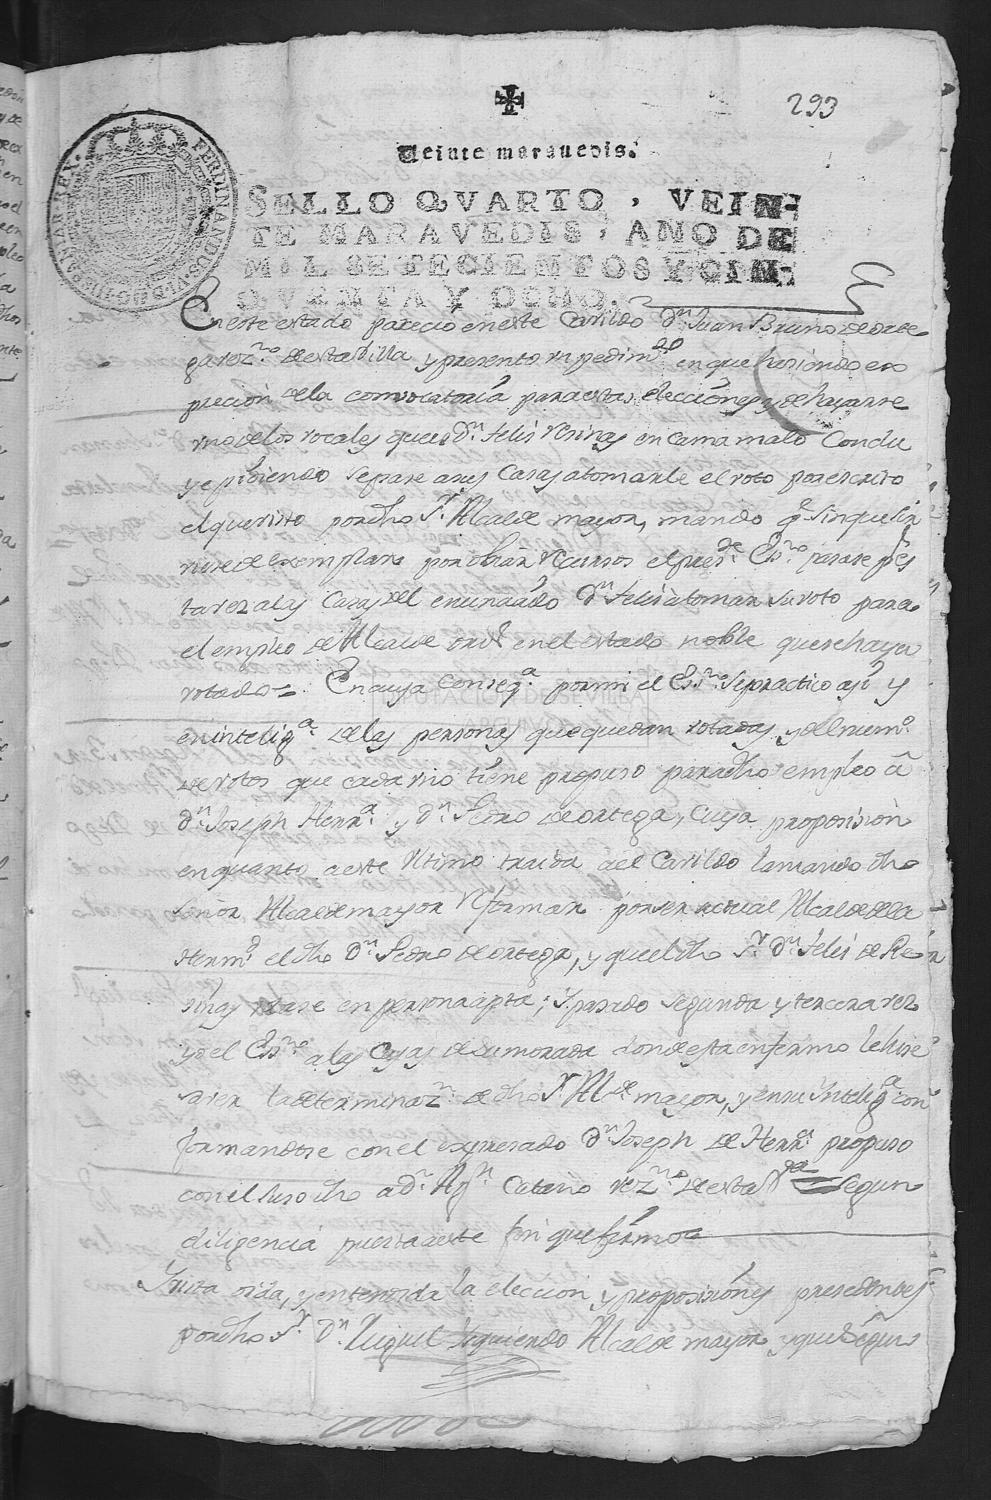 293
Veinte maravedis.
SELLO QVARTO, VEIN-
TE MARAVEDIS, AÑO DE
MIL SETECIENTOS Y CIN-
QVENTA Y OCHO.
FERDINANDUS VI D G HISPANIAR REX
En este estado parecio en este Cavildo Dn Juan Bruno de orte
ga vezno de esta Villa y presento un pedimto en que haziendo ex
precion de la convocatoria para estas elecciones y de hayarse
uno de los vocales que es Dn Felis Resinas en cama malo Conclu
ye pidiendo se pase a sus Casas a tomarle el voto por escrito
el que visto por dho Sr Alcalde mayor, mando qe sin que sir
viese de exemplar por obiar recursos el preste Essno pasase pres
ta vez a las Casas del enunciado Dn Felis a tomar su voto para
el empleo de Alcalde ordo en el estado noble que se haya
votado = En cuya conseqa por mi el Essno se practico asi y
en inteliga de las personas que quedan votadas, y del numo
de votos que cada uno tiene propuso para dho empleo a
Dn Joseph Herra y Dn Pedro de ortega, cuya proposision
en quanto a este Ultimo traida a el Cavildo la mando dho
Señor Alcalde mayor reformar por ser actual Alcalde de la
Hermd el dho Dn Pedro de ortega, y que el dho Sr Dn Felis de Re
sinas votase en persona apta; y pasado segunda y tercera vez
yo el Essno a las Casas de su morada donde esta enfermo le hise
saver la determinazn de dho Sr Alde mayor, y en su Inteliga con
formandose con el expresado Dn Joseph de Herra propuso
con el suso dho a Dn Agn Catano vezno de esta Va segun
diligencia puesta a este fin que firmo
Y vista oida, y entendida la eleccion y proposisiones presedentes
por dho Sr Dn Miguel Izquierdo Alcalde mayor y que segun